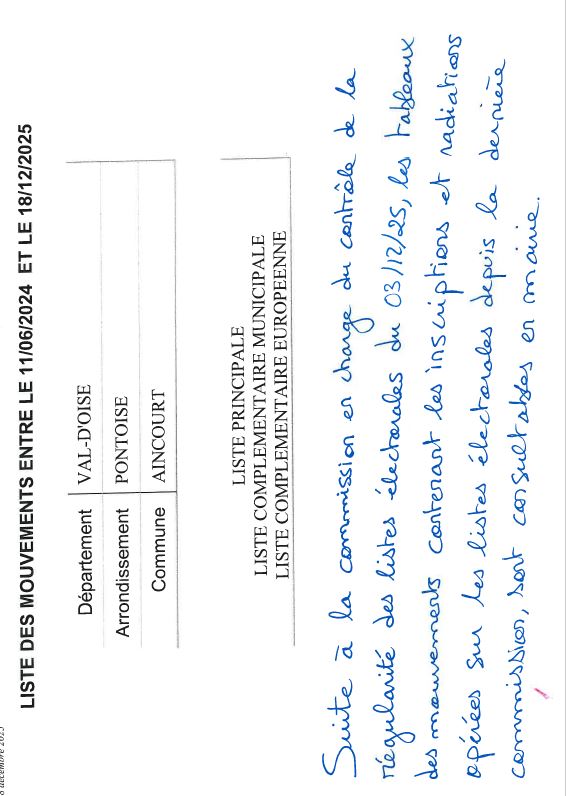 décembre 2025
LISTE DES MOUVEMENTS ENTRE LE 11/06/2024 ET LE 18/12/2025
Département VAL-D'OISE
Arrondissement PONTOISE
Commune AINCOURT
LISTE PRINCIPALE
LISTE COMPLEMENTAIRE MUNICIPALE
LISTE COMPLEMENTAIRE EUROPEENNE
Suite à la commission en charge du contrôle de la
régularité des listes électorales du 03/12/25, les tableaux
des mouvements contenant les inscriptions et radiations
opérées sur les listes électorales depuis la dernière
commission, sont consultables en mairie.